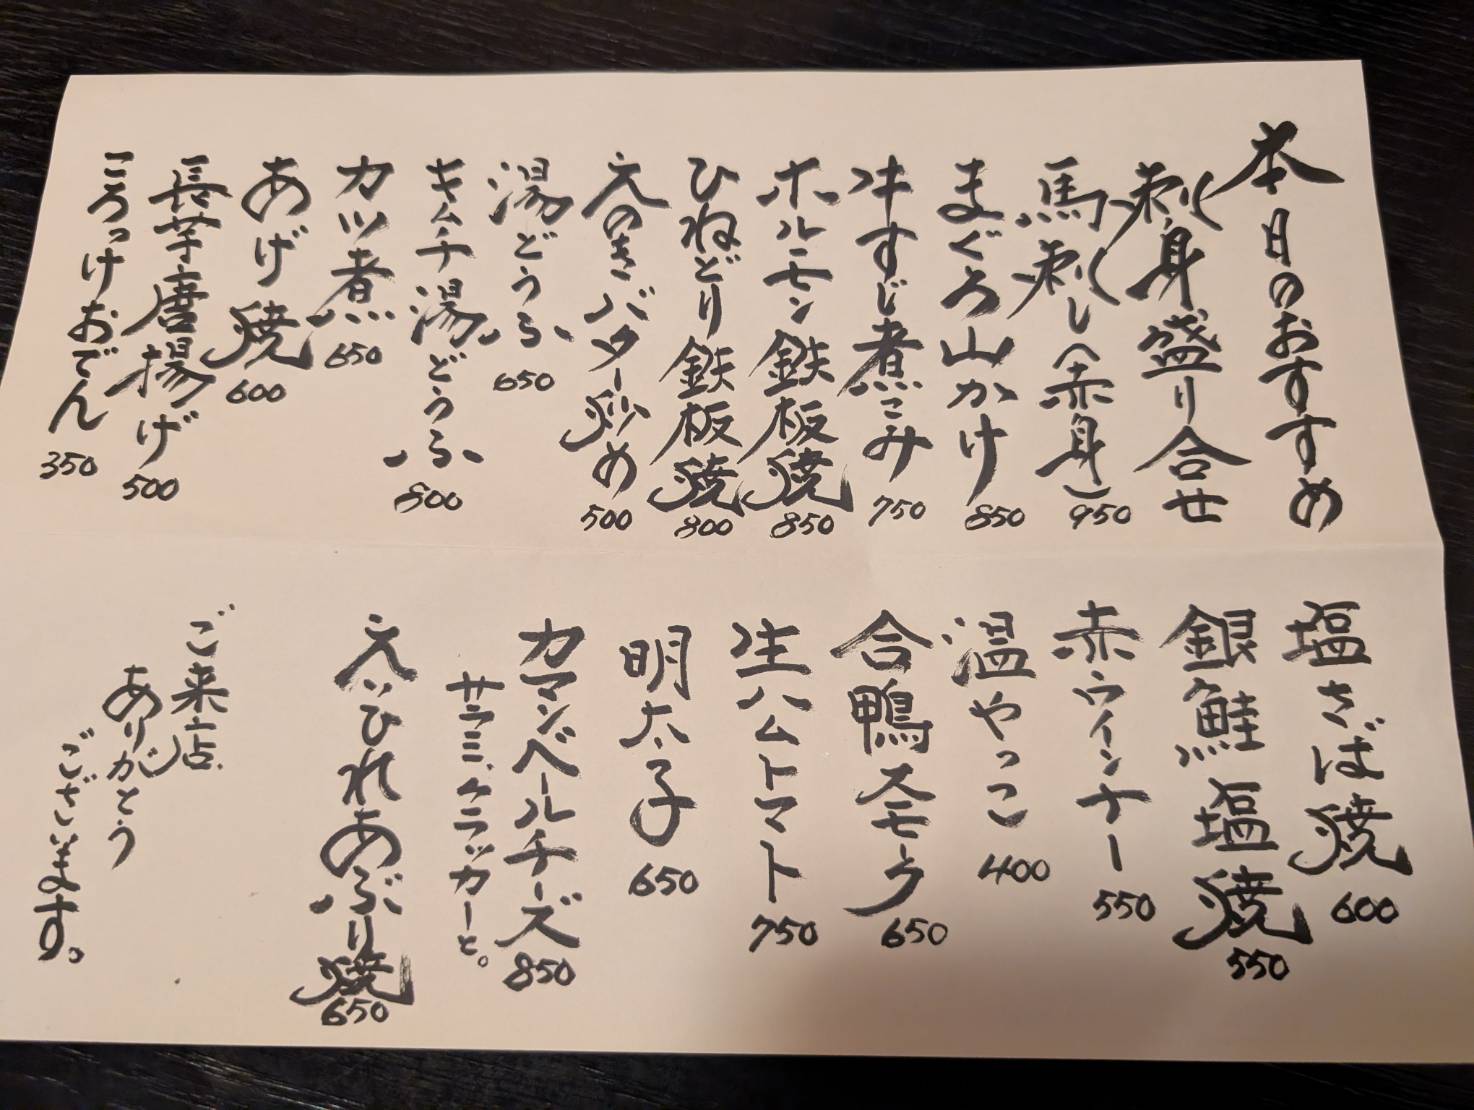 本日のおすすめ
刺身盛り合せ
馬刺し(赤身) 950
まぐろ山かけ 850
牛すじ煮こみ 750
ホルモン鉄板焼 850
ひねどり鉄板焼 800
えのきバター炒め 500
湯どうふ 650
キムチ湯どうふ 800
カツ煮 650
あげ焼 600
長芋唐揚げ 500
ころっけおでん 350
塩さば焼 600
銀鮭塩焼 550
赤ウインナー 550
温やっこ 400
合鴨スモーク 650
生ハムトマト 750
明太子 650
カマンベールチーズ 850
サラミ、クラッカーと。
えいひれあぶり焼 650
ご来店
ありがとう
ございます。